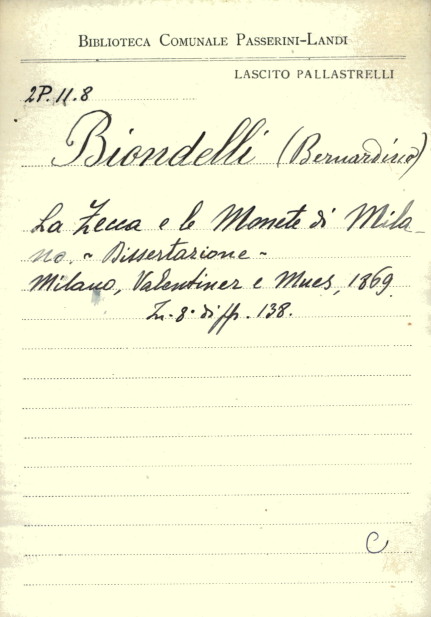 BIBLIOTECA COMUNALE PASSERINI-LANDI
LASCITO PALLASTRELLI
2P. 11. 8
Biondelli (Bernardino)
La Zecca e le Monete di Mila-
no. - Dissertazione -
Milano, Valentiner e Mues, 1869
In-8° di pp. 138.
C